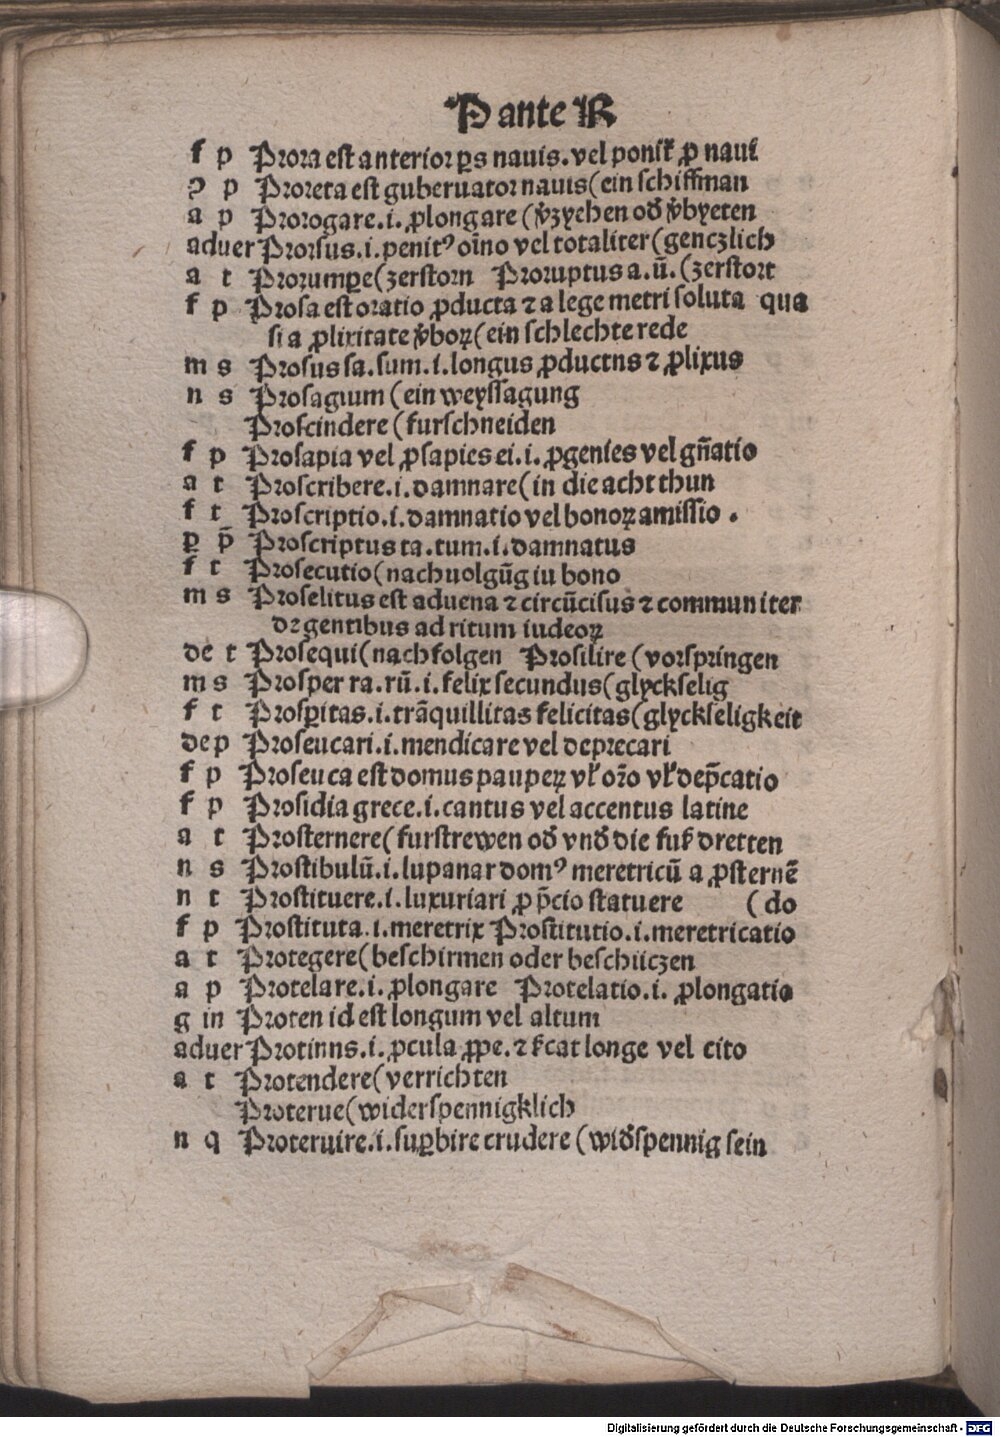 P ante R
f p Prora est anterior ꝑs nauis. vel ponit̄ ꝓ naui
ꝯ p Proreta est guberuator nauis (ein schiffman
a p Prorogare .i. ꝓlongare (v̄zyehen od̄ v̄byeten
aduer Prorsus .i. penitꝰ oīno vel totaliter (genczlich
a t Prorumꝑe (zerstorn Proruptus a. ū. (zerstort
f p Prosa est oratio ꝓducta ⁊ a lege metri soluta qua
si a ꝓlixitate v̄boꝝ (ein schlechte rede
m s Prosus sa. sum. i. longus ꝓductns ⁊ ꝓlixus
n s Prosagium (ein weyssagung
Proscindere (furschneiden
f p Prosapia vel ꝓsapies ei. i. ꝓgenies vel gn̄atio
a t Proscribere .i. damnare (in die acht thun
f t Proscriptio .i. damnatio vel bonoꝝ amissio .
ꝑ p̄ Proscriptus ta. tum. i. damnatus
f t Prosecutio (nachuolgūg iu bono
m s Proselitus est aduena ⁊ circūcisus ⁊ communiter
dꝛ gentibus ad ritum iudeoꝝ
de t Prosequi (nachfolgen Prosilire (vorspringen
m s Prosper ra. rū. i. felix secundus (glyckselig
f t Prosꝑitas .i. trāquillitas felicitas (glyckseligkeit
de p Proseucari .i. mendicare vel deprecari
f p Proseuca est domus pauperꝝ vl̓ or̄o vl̓ dep̄catio
f p Prosidia grece .i. cantus vel accentus latine
a t Prosternere (furstrewen od̄ vnd̄ die fuß dretten
n s Prostibulū .i. lupanar domꝰ meretricū a ꝓsternē
n t Prostituere .i. luxuriari ꝓ p̄cio statuere (do
f p Prostituta .i. meretrix Prostitutio .i. meretricatio
a t Protegere (beschirmen oder beschiiczen
a p Protelare .i. ꝓlongare Protelatio .i. ꝓlongatio
g in Proten id est longum vel altum
aduer Protinns .i. ꝓcula ꝓpe. ⁊ ſ̄cat longe vel cito
a t Protendere (verrichten
Proterue (widerspennigklich
n q Proteruire .i. suꝑbire crudere (wid̄spennig sein
Digitalisierung gefördert durch die Deutsche Forschungsgemeinschaft - DFG